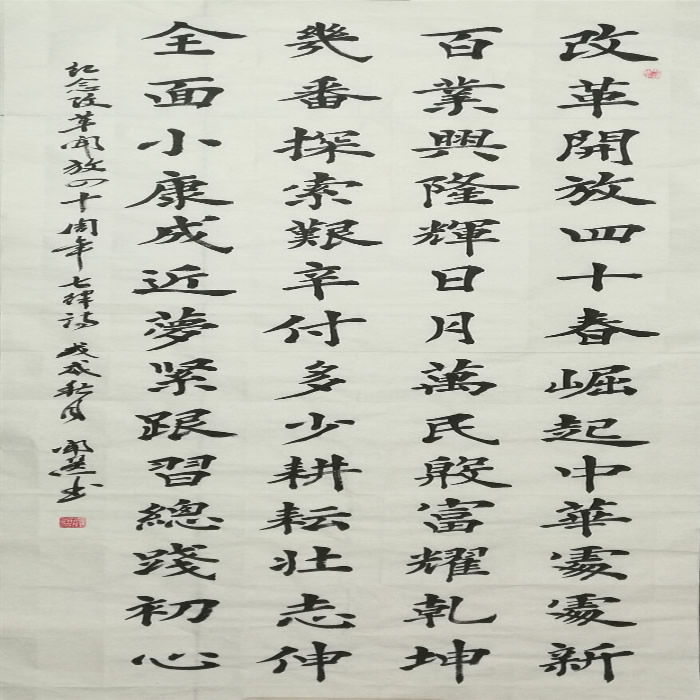 改革開放四十春崛起中華處處新
百業興隆輝日月萬民殷富耀乾坤
幾番探索艱辛付多少耕耘壯志伸
全面小康成近夢緊跟習總踐初心
紀念改革開放四十周年七律詩 戊戌秋月 書